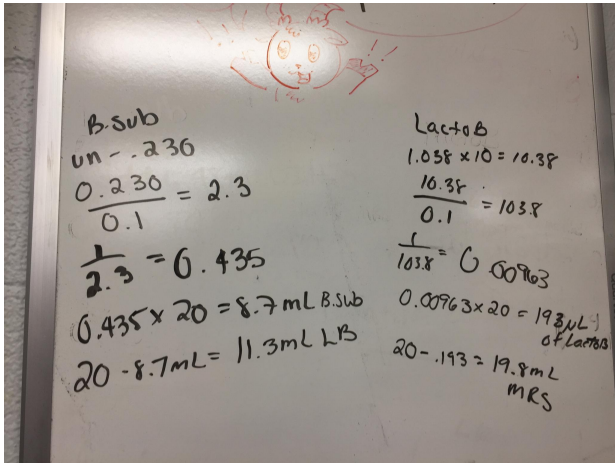 B.Sub
un - .230
0.230
0.1
= 2.3
1
2.3
= 0.435
0.435 x 20 = 8.7mL B.Sub
20 - 8.7mL = 11.3mL LB
LactoB
1.038 x 10 = 10.38
10.38
0.1
= 103.8
1
103.8
= 0.00963
0.00963 x 20 = 193µL
of LactoB
20 - .193 = 19.8mL
MRS